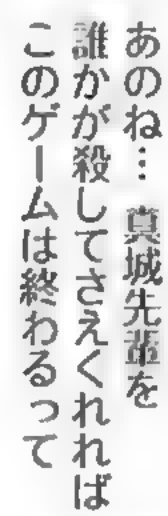 あのね… 真城先輩を
誰かが殺してさえくれれば
このゲームは終わるって